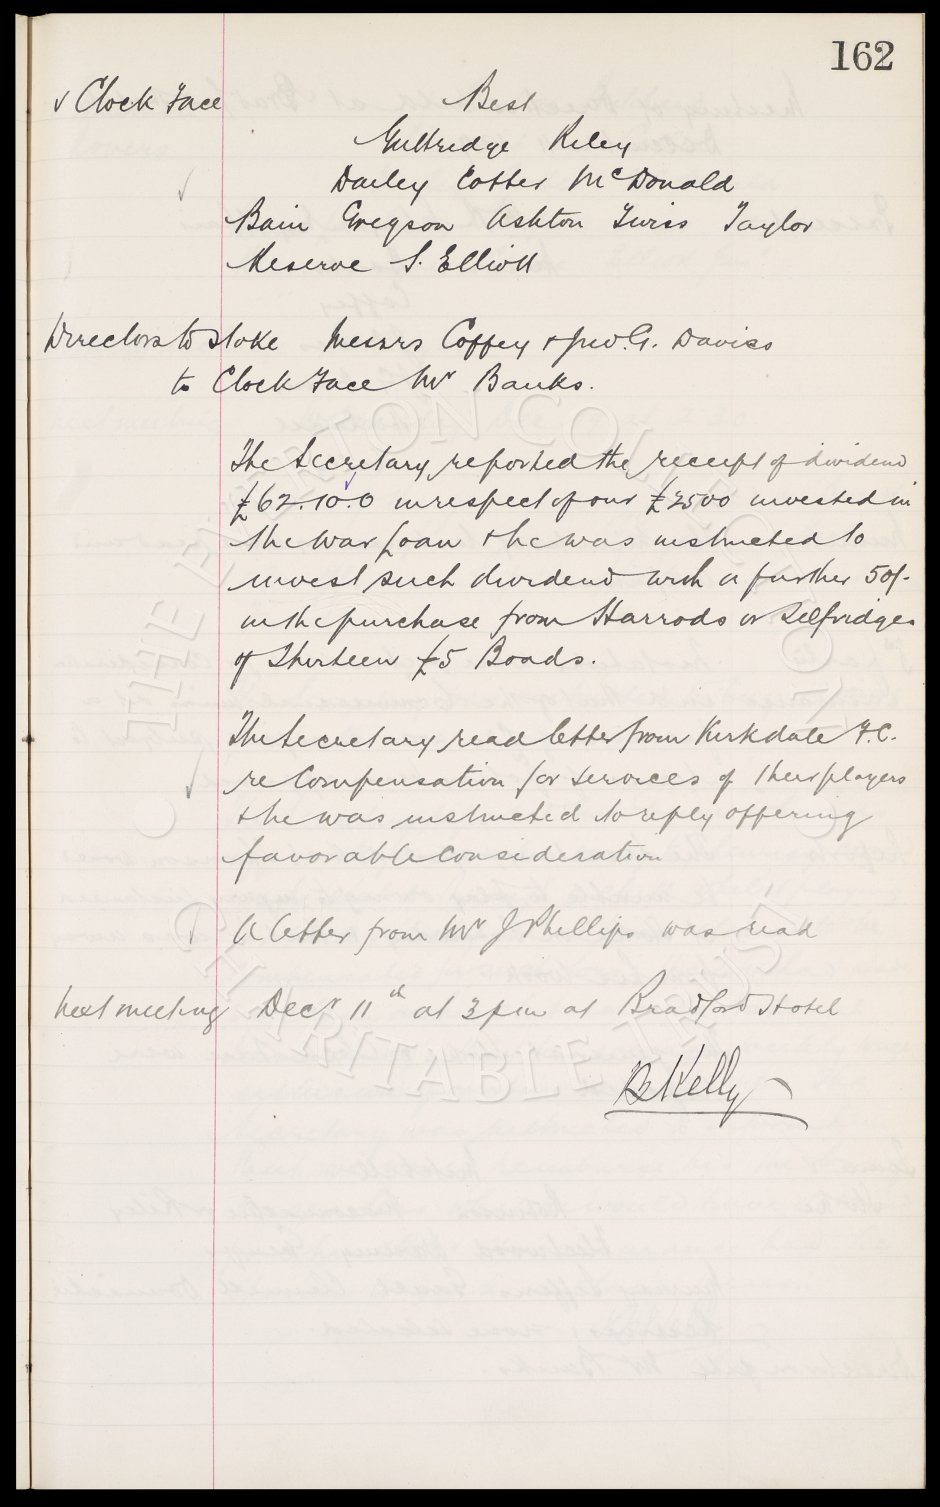 162
v Clock Face Best
Guttridge Riley
Dailey Cotter McDonald
Bain Gregson Ashton Twiss Taylor
Reserve S. Elliott
Directors to Stoke Messrs Coffey & Jno. G. Davies
to Clock Face Mr Banks.
The Secretary reported the receipt of dividend
£62.10.0 in respect of our £2500 invested in
the War Loan & he was instructed to
invest such dividend with a further 50/-
in the purchase from Harrods or Selfridges
of Thirteen £5 Bonds.
The Secretary read letter from Kirkdale F.C.
re Compensation for services of their players
& he was instructed to reply offering
favorable consideration
A letter from Mr J Phillips was read
Next meeting Decr 11th at 3pm at Bradford Hotel
B Kelly
THE EVERTON COLLECTION
CHARITABLE TRUST